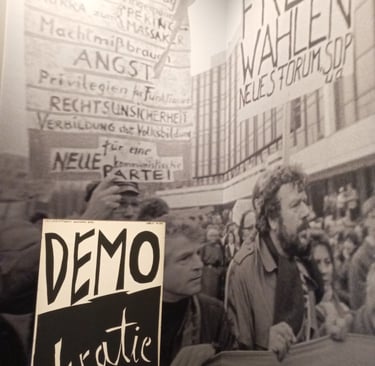 HURRA zum
PEKINGER
MASSAKER
Machtmißbrauch
ANGST
Privilegien für Funktionäre
RECHTSUNSICHERHEIT
VERBILDUNG der Volksbildung
für eine
NEUE kommunistische
PARTEI
WAHLEN
NEUES FORUM, SDP
DEMO
kratie